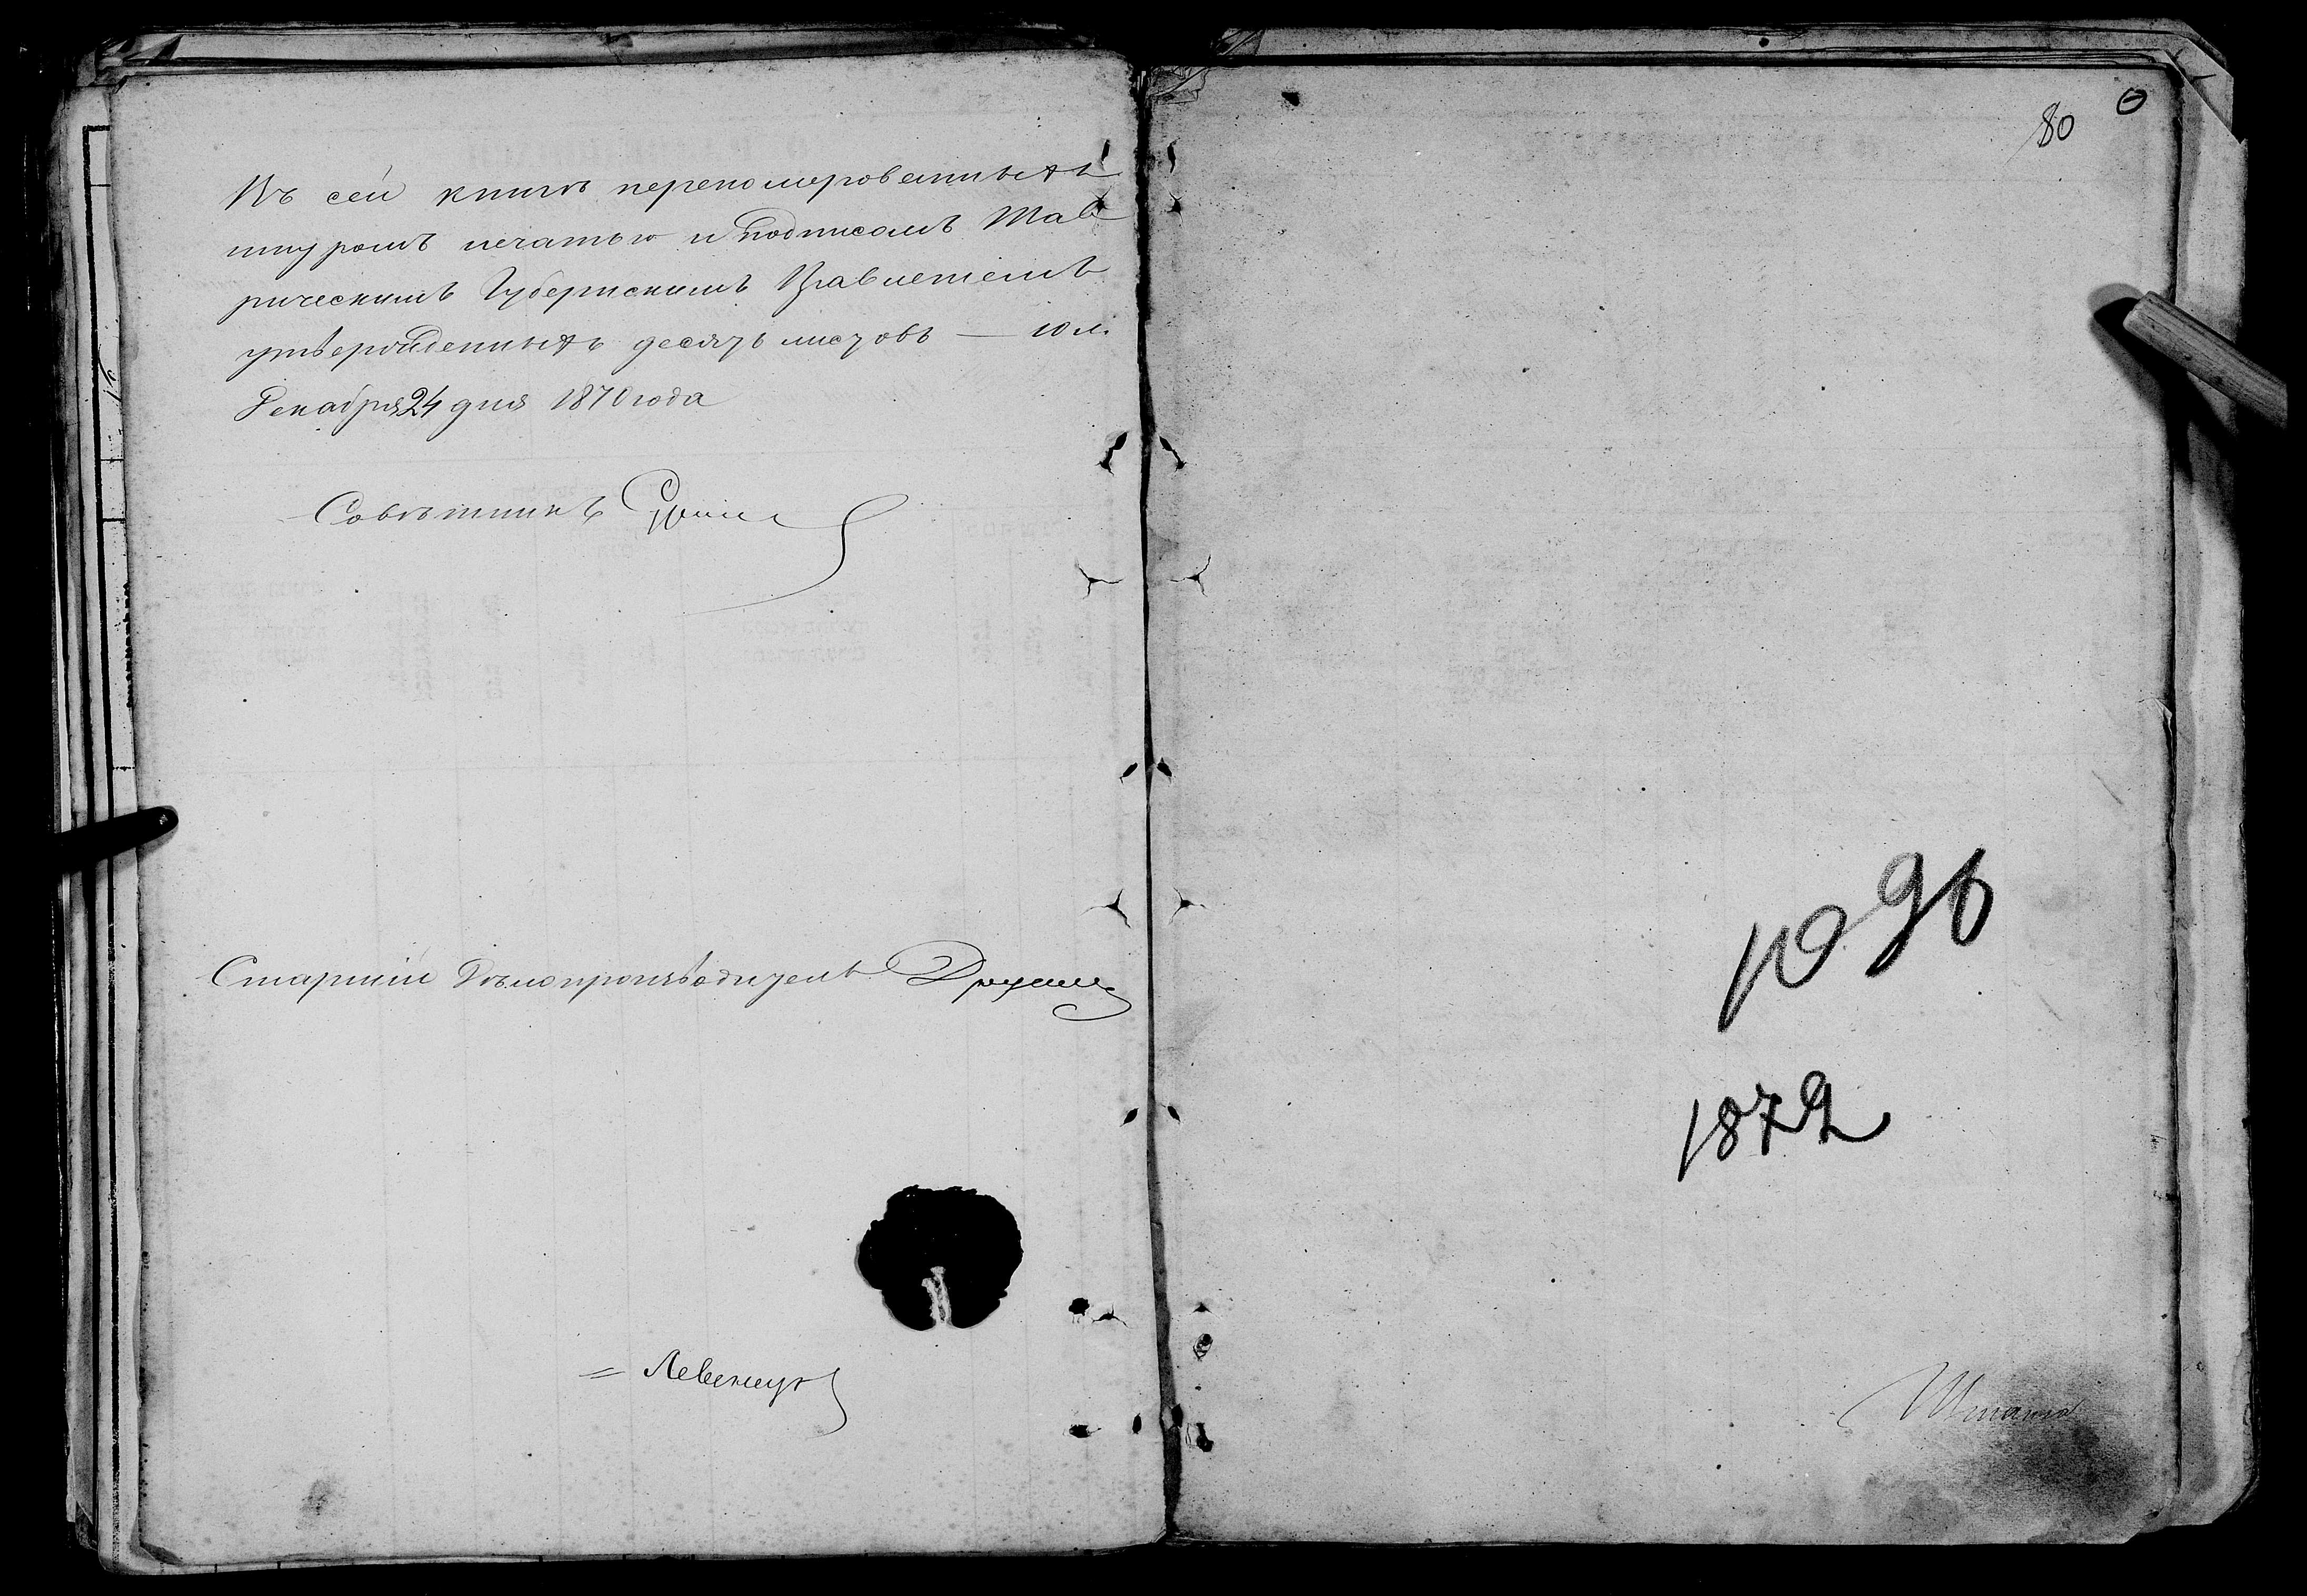 Въ сей книгѣ перенумерованныхъ
шнуромъ печатью и подписомъ Тав
рическимъ Губернскимъ Правленіемъ
утвержденныхъ десять листовъ — 10 л.
Декабря 24 дня 1870 года
Совѣтникъ
Старшій Дѣлопроизводитель
80
1096
1872